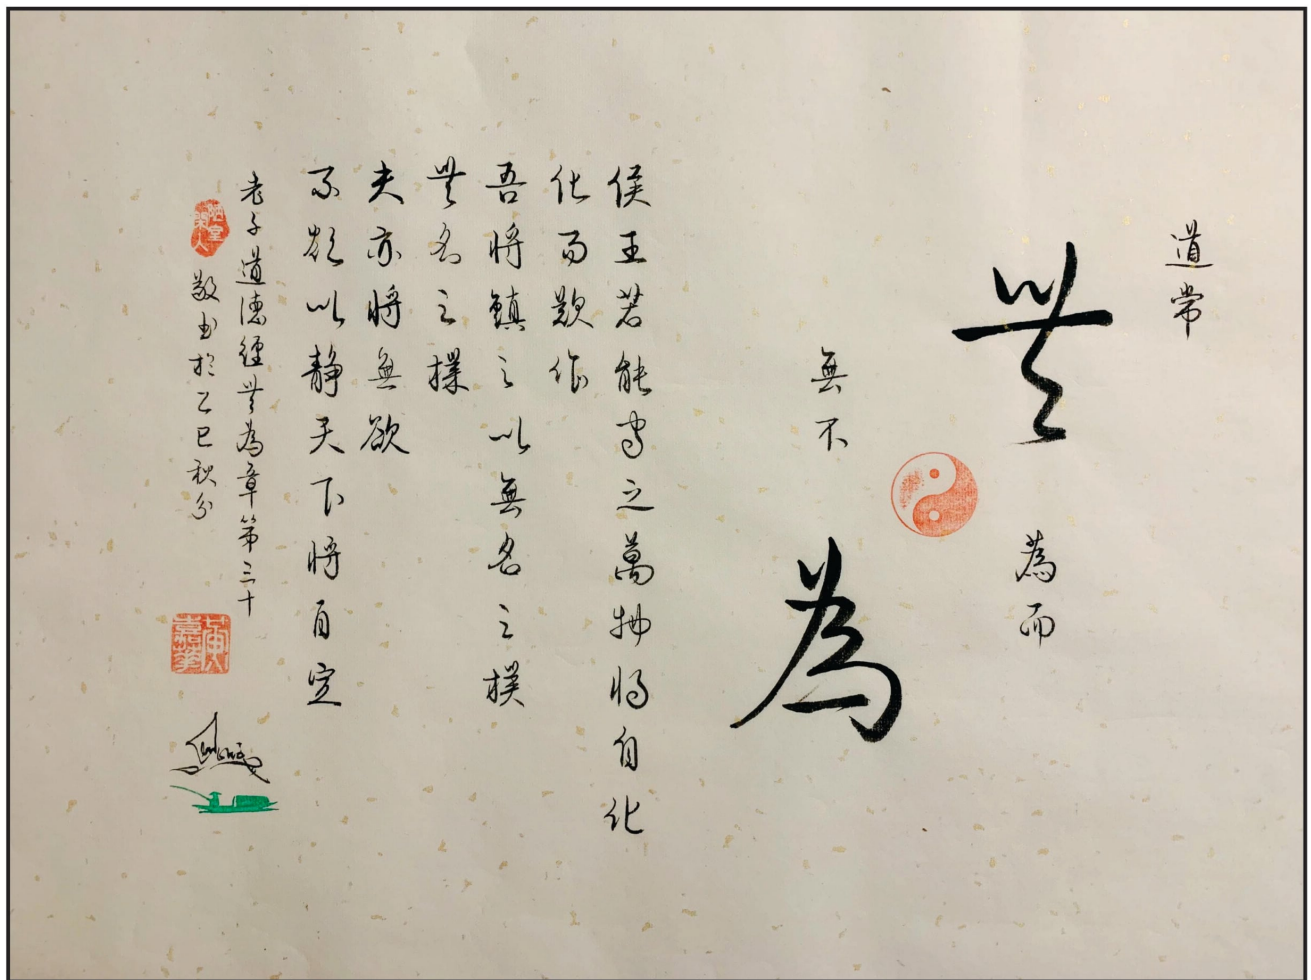 道常
無為而
無不為
侯王若能守之萬物將自化
化而欲作
吾將鎮之以無名之樸
無名之樸
夫亦將無欲
不欲以靜天下將自定
老子道德經無為章第三十
陋室閒人
敬書於乙巳秋分